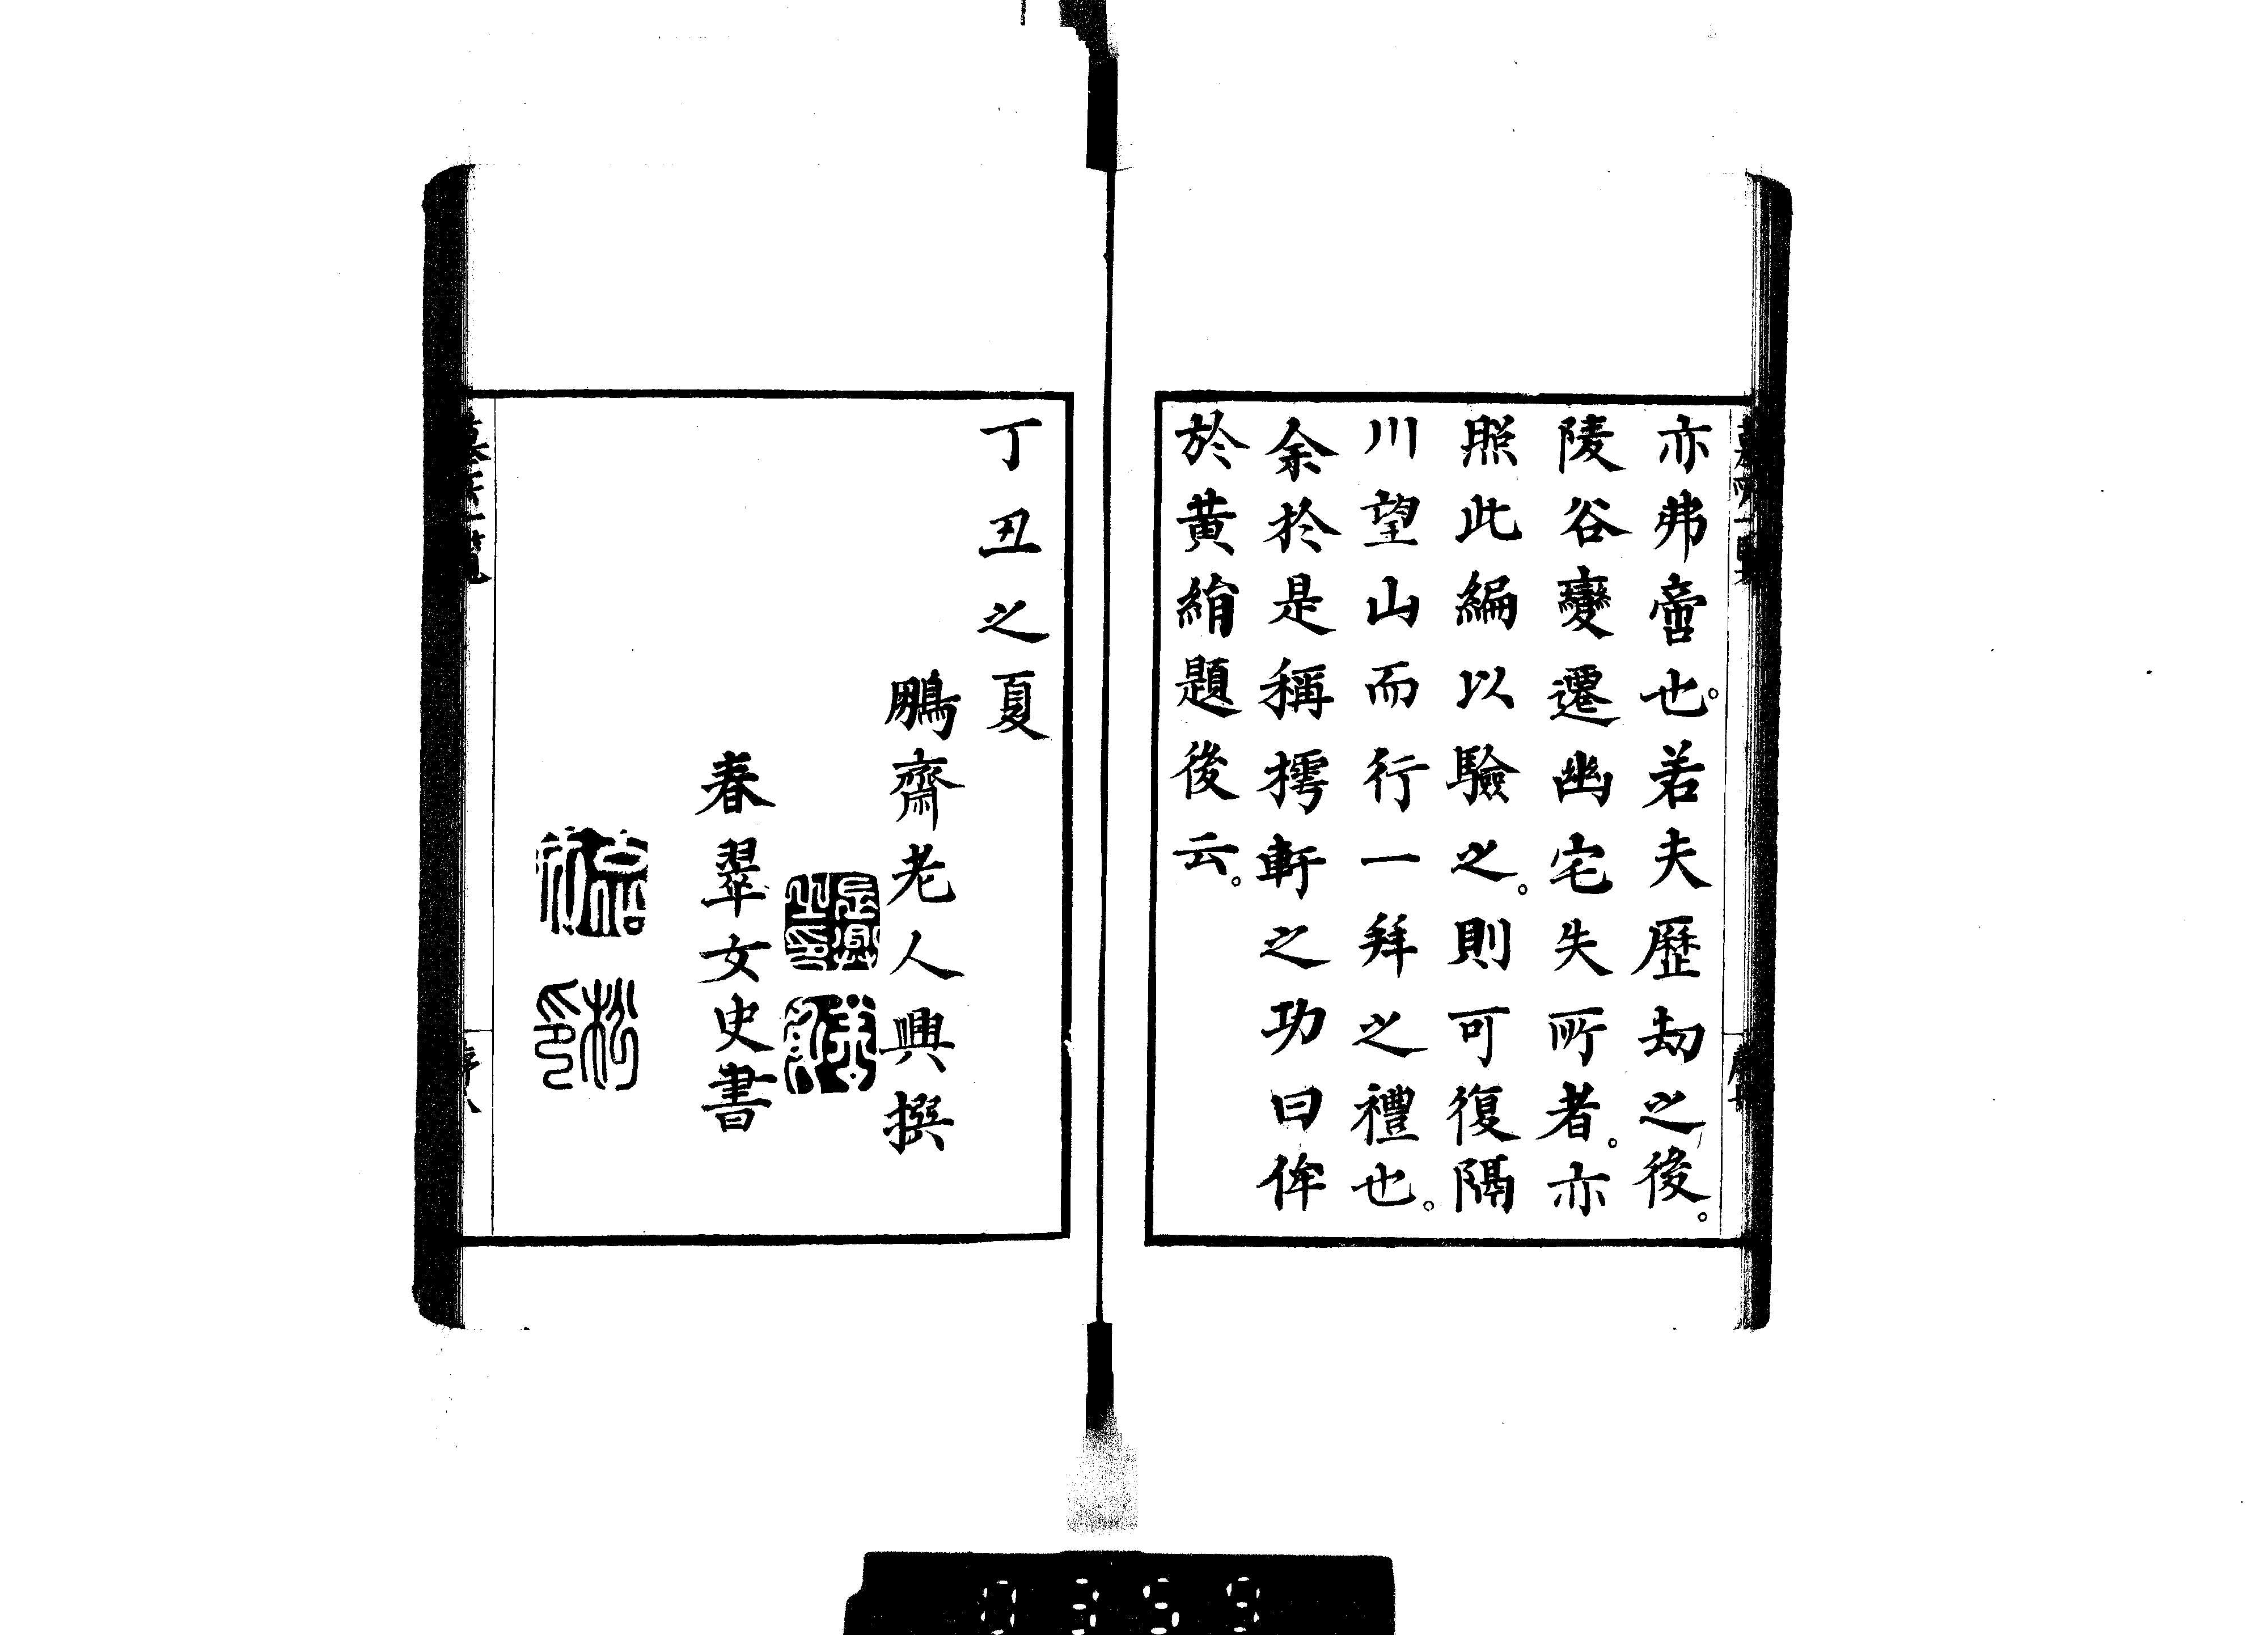 亦弗啻也。若夫歷劫之後。
陵谷變遷幽宅失所者。亦
照此編以驗之。則可復隔
川望山而行一拜之禮也。
余於是稱樗軒之功曰侔
於黃絹題後云。
丁丑之夏
鵬齋老人興撰
春翠女史書
松印
0359